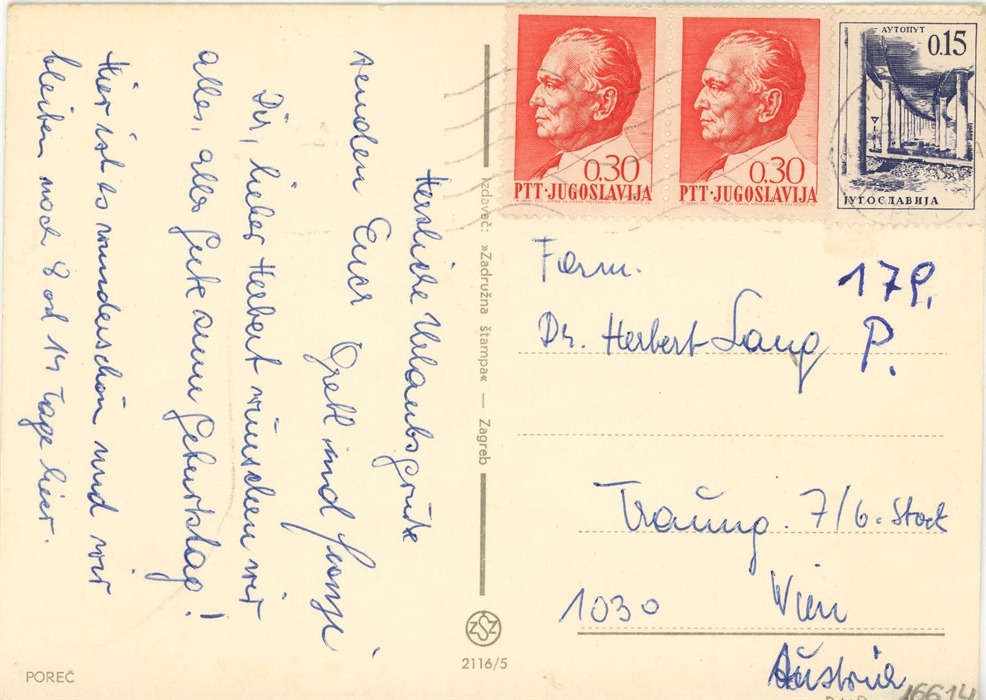 Herzliche Urlaubsgrüße
senden Euch Gretl und
Dir, lieber Herbert wünschen wir
alles, alles Gute zum Geburtstag!
Hier ist's wunderschön und wir
bleiben noch 8 od 14 Tage hier.
POREČ
Izdavač: »Zadružna štampa« — Zagreb
ZSZ
2116/5
0.30
PTT·JUGOSLAVIJA
0.30
PTT·JUGOSLAVIJA
АУТОПУТ
0.15
ЈУГОСЛАВИЈА
179.
P.
Fam.
Dr. Herbert Lang
Traung. 7/6. Stock
1030 Wien
Austria
16614